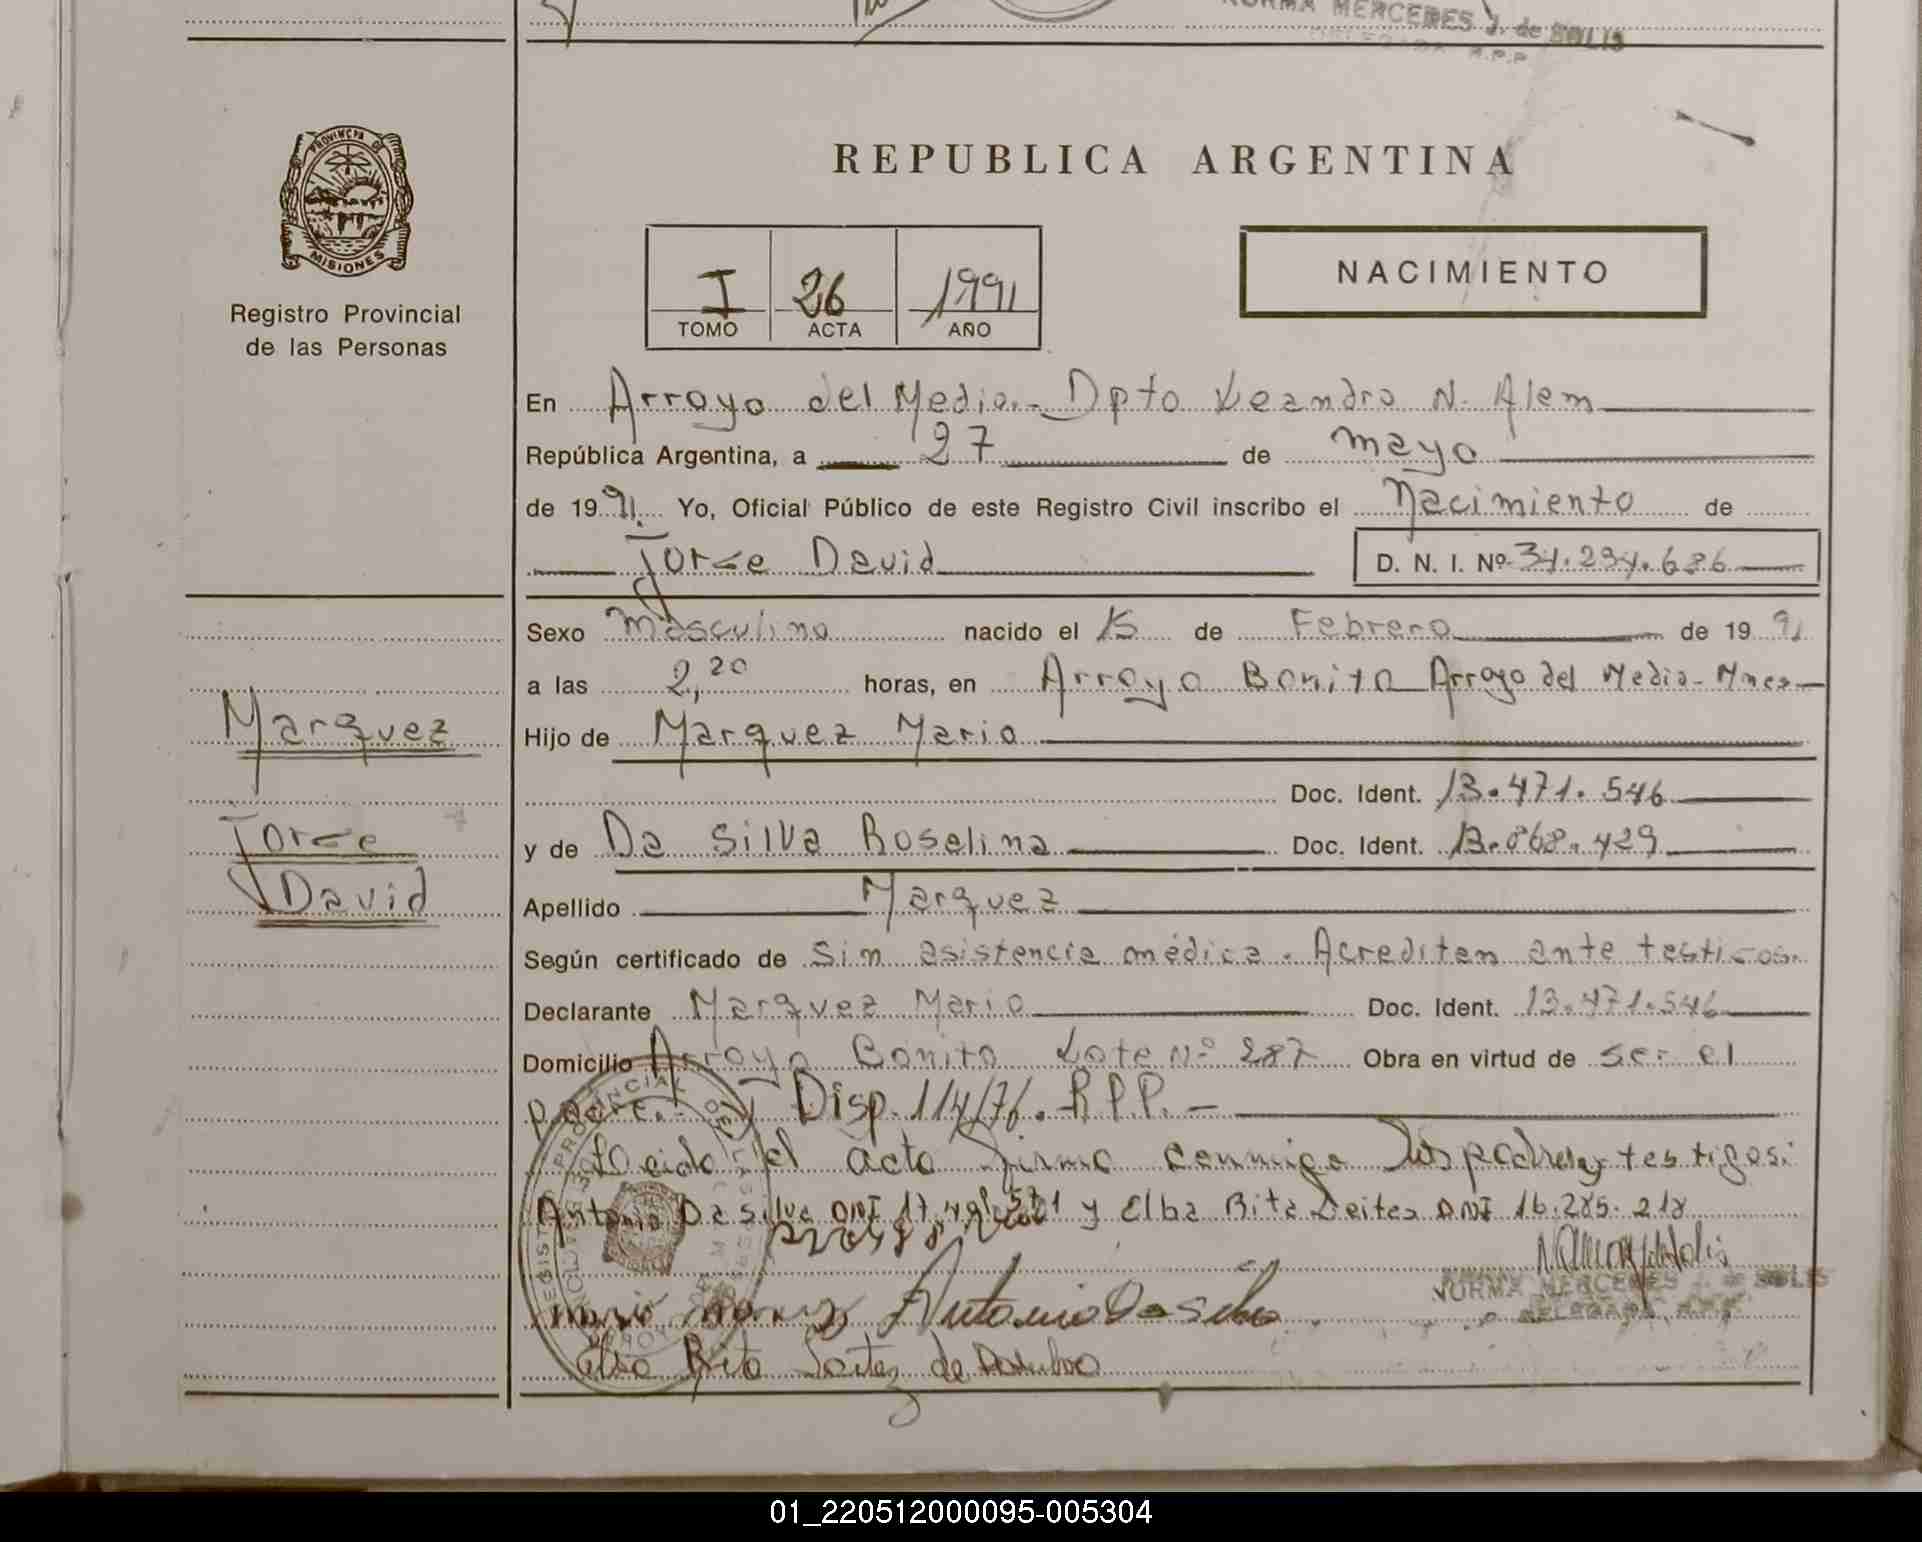 NORMA MERCEDES J. de SOLIS
DELEGADA R.P.P.
PROVINCIA DE
MISIONES
Registro Provincial
de las Personas
REPUBLICA ARGENTINA
I 26 1991
TOMO ACTA AÑO
NACIMIENTO
En Arroyo del Medio.- Dpto Leandro N. Alem
República Argentina, a 27 de mayo
de 1991. Yo, Oficial Público de este Registro Civil inscribo el Nacimiento de
Jorge David D. N. I. Nº 34.294.686
Sexo Masculino nacido el 15 de Febrero de 1991
a las 2,20 horas, en Arroyo Bonito Arroyo del Medio - Mnes -
Marquez
Hijo de Marquez Mario
Doc. Ident. 13.471.546
Jorge
y de Da Silva Roselina Doc. Ident. 13.868.429
David
Apellido Marquez
Según certificado de Sin asistencia médica. Acreditan ante testigos.
Declarante Marquez Mario Doc. Ident. 13.471.546
Domicilio Arroyo Bonito Lote Nº 287 Obra en virtud de ser el
padre. y Disp. 114/76. R.P.P. -
Leida el acta firma conmigo los padres y testigos:
Antonio Da Silva DNI y Elba Rita Leites DNI 16.285.218
Mario Marquez Antonio Da Silva
NORMA MERCEDES J. de SOLIS
DELEGADA R.P.P.
Elba Rita
01_220512000095-005304